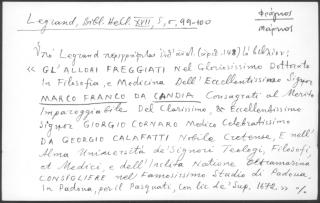 Legrand, Bibl. Hell. XVII, 5, σ, 99-100
Φράγκος
Μάρκος
Ὑπὸ Legrand περιγράφεται ὑπ' ἀριθ. (ἀριθ. 148) τὸ βιβλίον:
« GL'ALLORI FREGGIATI Nel Gloriosissimo Dottorato
In Filosofia, e Medicina Dell'Eccellentissimo Signor
MARCO FRANCO DA CANDIA Consagrati al Merito
Impareggiabile Del Clarissimo, & Eccellentissimo
Signor GIORGIO CORNARO Medico Celebratissimo
DA GEORGIO CALAFATTI Nobile Cretense, E nell'
Alma Università de' Signori Teologi, Filosofi,
et Medici, e dell'Inclita Natione Oltramarina
CONSIGLIERE nel Famosissimo Studio di Padoua.
In Padoua, per il Pasquati, Con lic. de' Sup. 1672. »